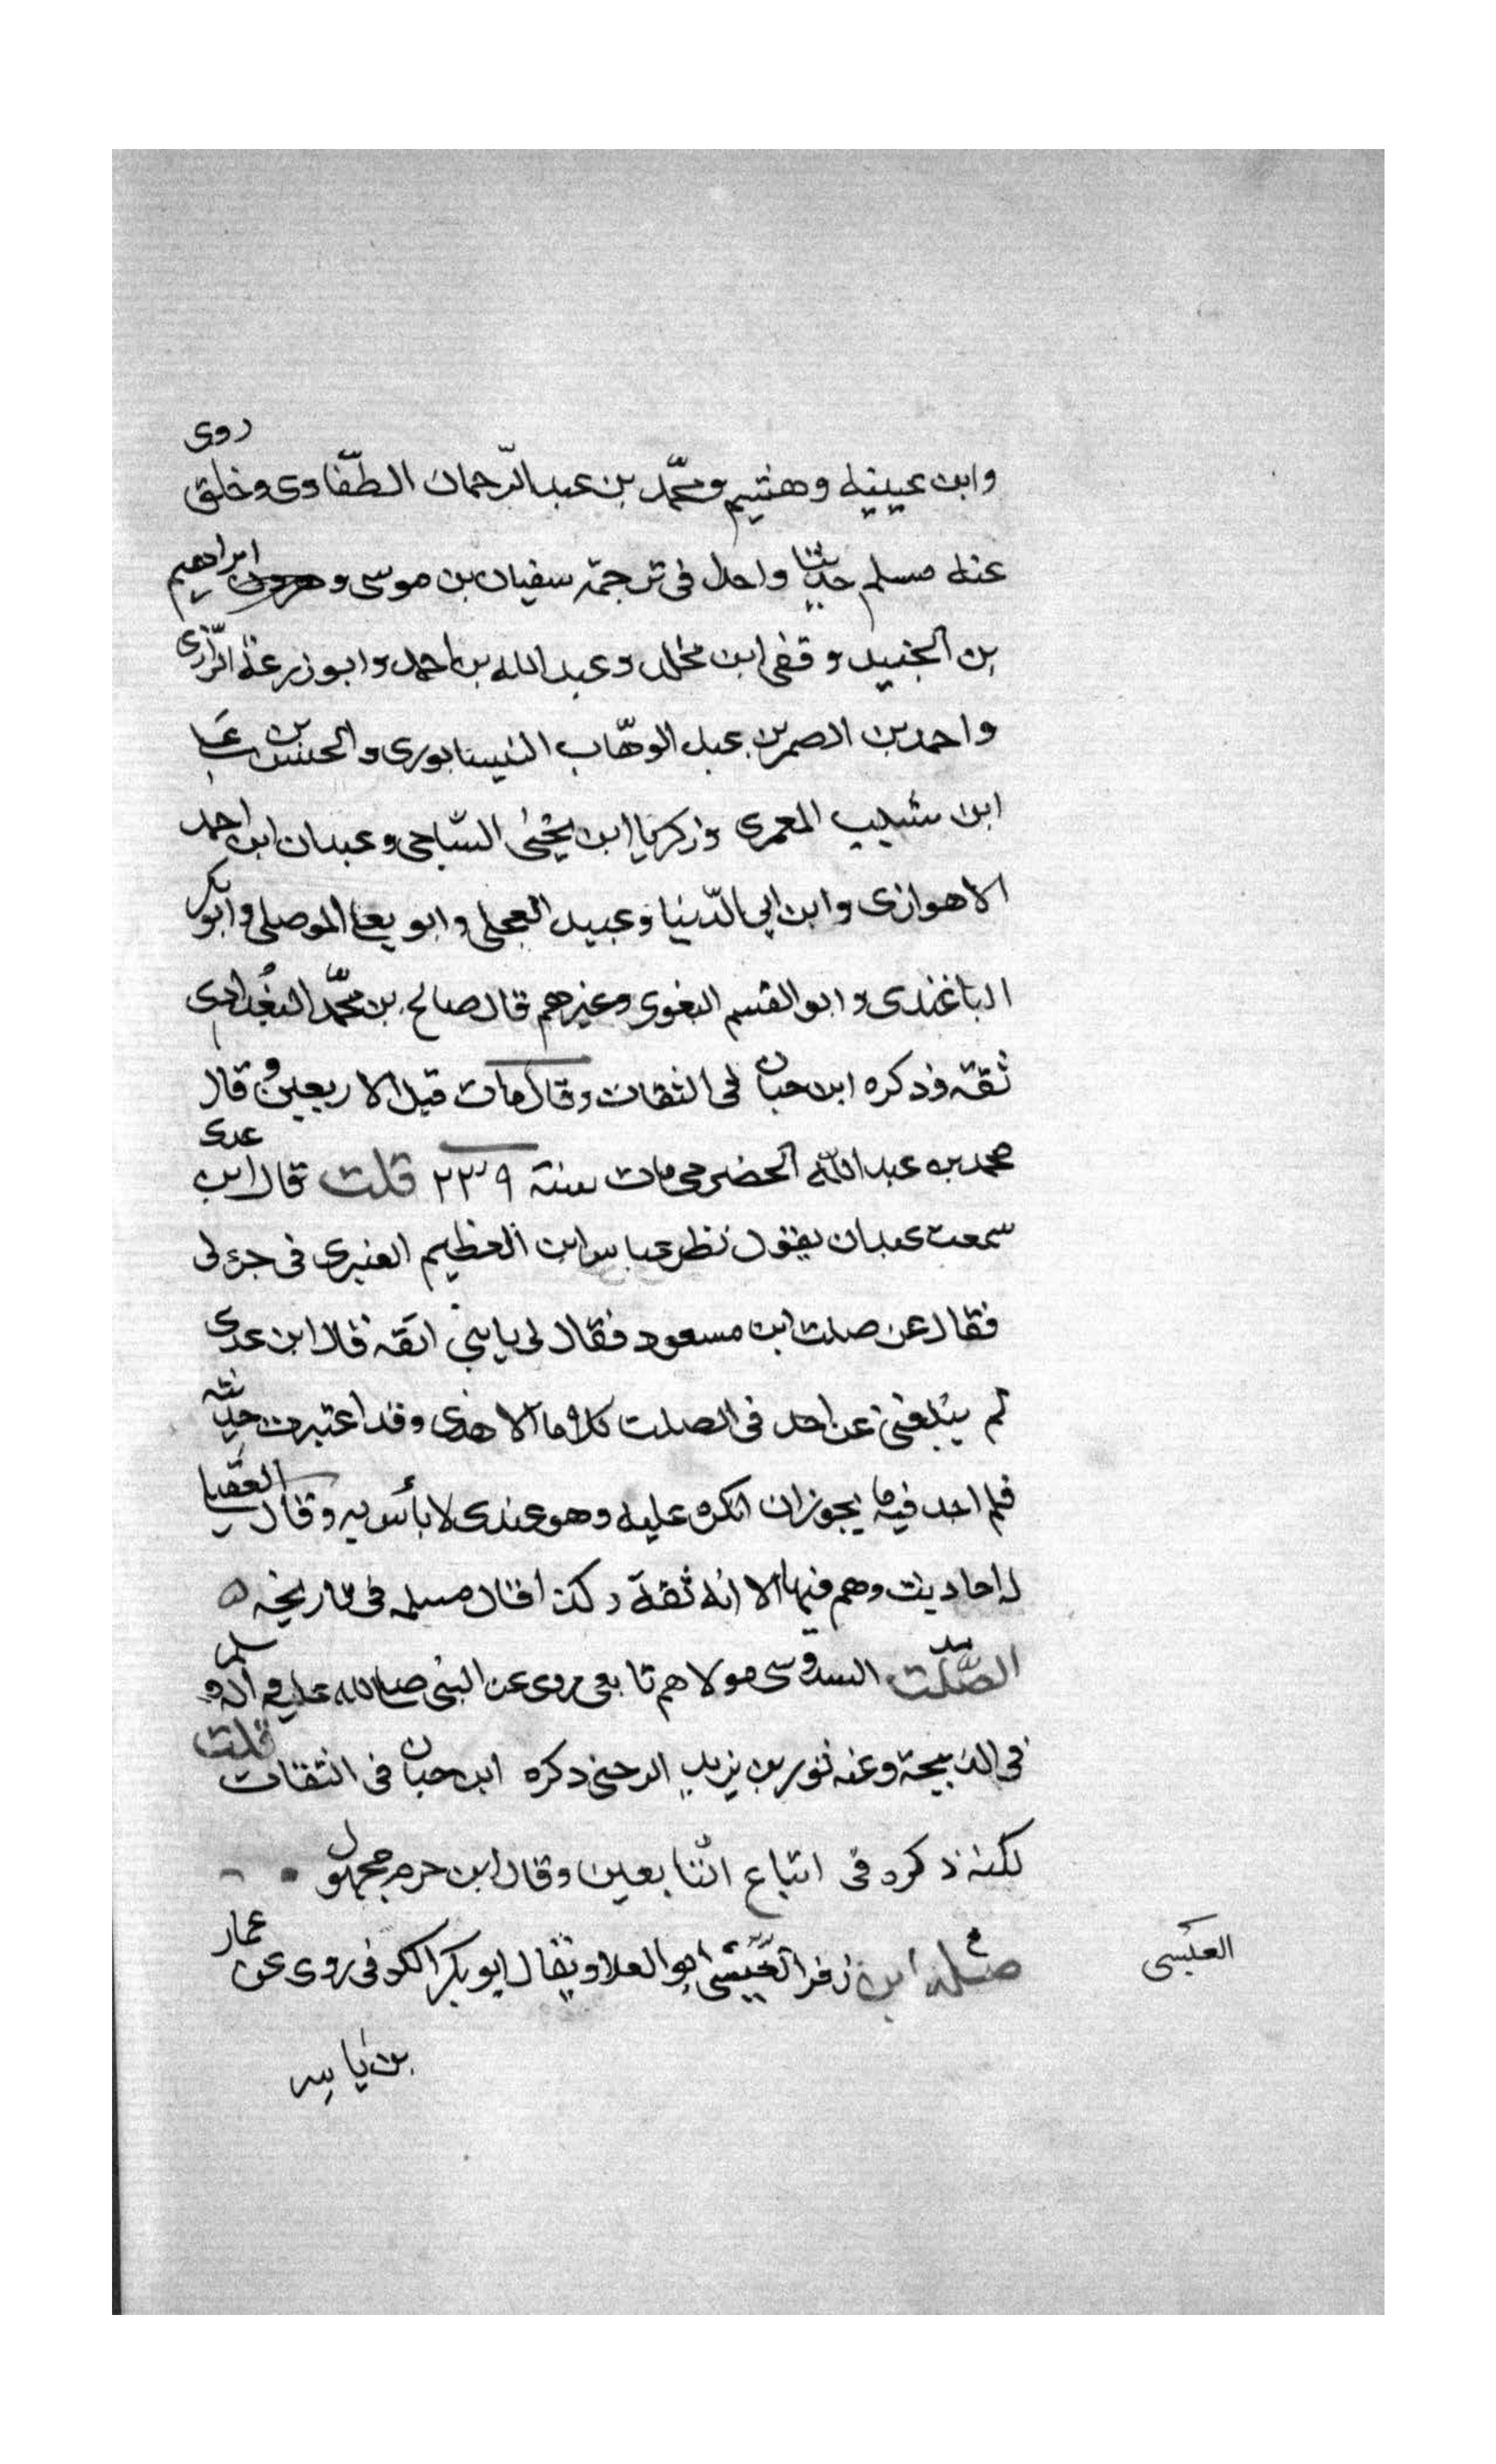 وابن عيينه وهشيم ومحمّد بن عبد الرّحمان الطفّاوى وخلق روى
عنه مسلم حديثا واحدا فى ترجمة سفيان بن موسى و ابراهيم
بن الجنيد و قفى ابن مخلد وعبد الله بن احمد وابو زرعة الرّازى
واحمد بن النصر بن عبد الوهّاب النيسابورى والحسن بن على
ابن شبيب المعمرى وزكريا ابن يحيى السّاجى وعبدان ابن احمد
الاهوازى وابن ابى الدّنيا وعبيد العجلى وابو يعلى الموصلى وابو بكر
الباغندى وابو القسم البغوى وغيرهم قال صالح بن محمّد البغدادى
ثقة وذكره ابن حبان فى الثقات وقال مات قبل الاربعين و قال
محمد بن عبد الله الحضرمى مات سنة ٢٣٩ قلت قال ابن عدى
سمعت عبدان يقول نظر عباس ابن العظيم العنبرى فى جزء لى
فقال عن صلت ابن مسعود فقال لى يابنى اتقه قال ابن عدى
لم يبلغنى عن احد فى الصلت كلاما الا هذى وقد اعتبرت حديثه
فلم اجد فيه ما يجوز ان انكره عليه وهو عندى لا بأس به وقال العقيلى
له احاديث وهم فيها الا انه ثقة وكذا قال مسلمه فى تاريخه ه
الصّلت السدوسى مولاهم تابعى روى عن النبى صلى الله عليه و آله و سلم
فى الذبيحة وعنه ثور بن يزيد الرحبى ذكره ابن حبان فى الثقات قلت
لكنه ذكره فى اتباع التّابعين وقال ابن حزم مجهول
صلة ابن زفر العبسى ابو العلا ويقال ابو بكر الكوفى روى عن عمار
العبسى
بن ياسر